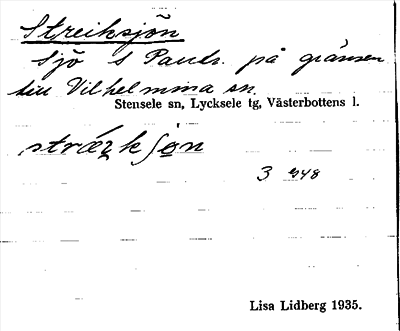 Streiksjön
sjö s Pauträsk på gränsen
till Vilhelmina sn.
Stensele sn, Lycksele tg, Västerbottens l.
3 948
Lisa Lidberg 1935.